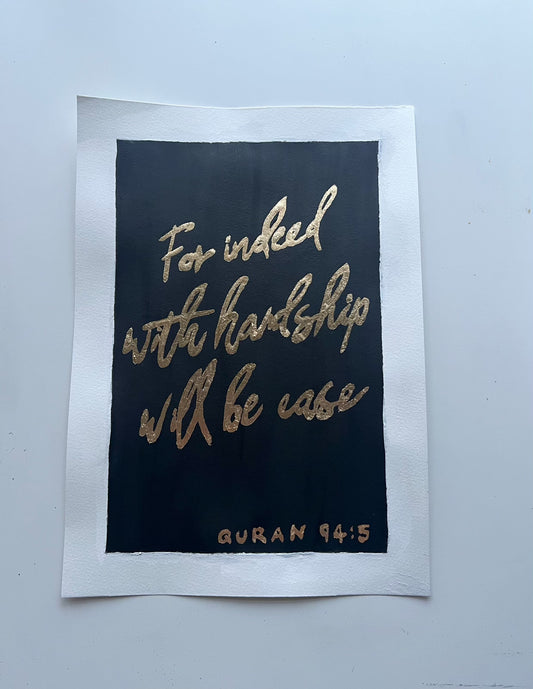 For indeed
with hardship
will be ease
QURAN 94:5